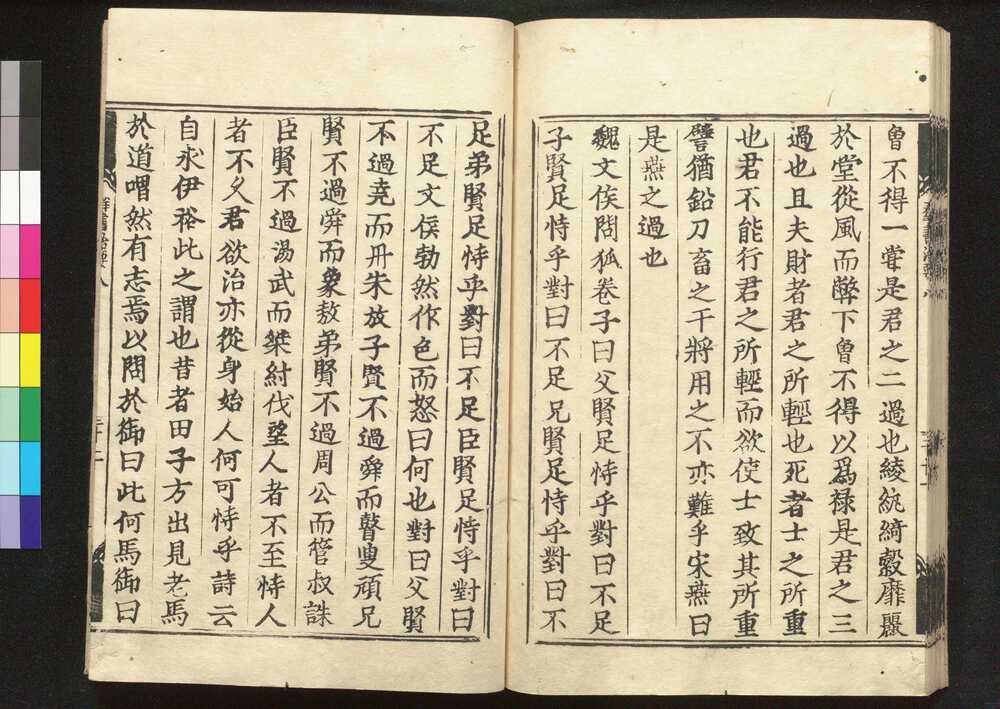 曾不得一嘗是君之二過也綾紈綺縠靡麗
於堂從風而弊下曾不得以爲祿是君之三
過也且夫財者君之所輕也死者士之所重
也君不能行君之所輕而欲使士致其所重
譬猶鉛刀畜之干將用之不亦難乎宋燕曰
是燕之過也
魏文侯問狐卷子曰父賢足恃乎對曰不足
子賢足恃乎對曰不足兄賢足恃乎對曰不
足弟賢足恃乎對曰不足臣賢足恃乎對曰
不足文侯勃然作色而怒曰何也對曰父賢
不過堯而丹朱放子賢不過舜而瞽叟頑兄
賢不過舜而象敖弟賢不過周公而管叔誅
臣賢不過湯武而桀紂伐望人者不至恃人
者不久君欲治亦從身始人何可恃乎詩云
自求伊祜此之謂也昔者田子方出見老馬
於道喟然有志焉以問於御曰此何馬御曰
群書治要八
三十二